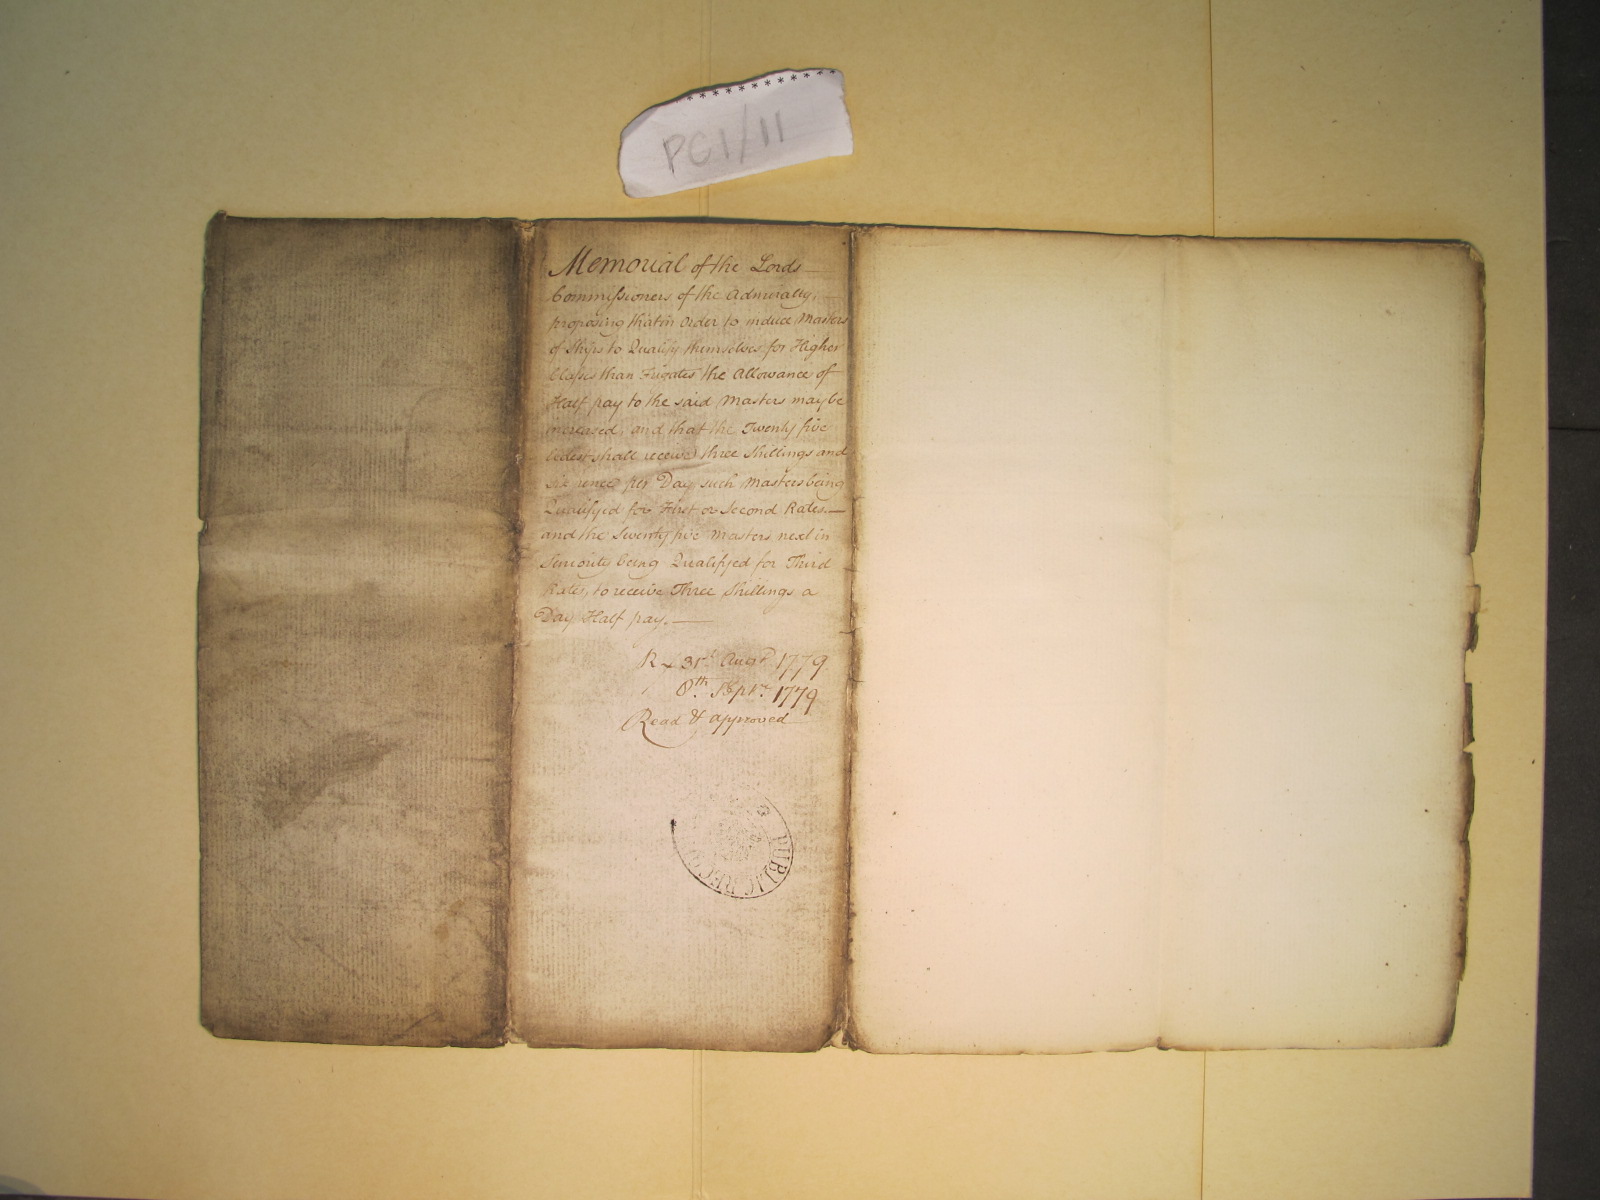 PC1/11
Memorial of the Lords
Commissioners of the Admiralty,
proposing that in Order to induce Masters
of Ships to Qualify themselves for Higher
Classes than Frigates the Allowance of
Half pay to the said Masters may be
increased, and that the Twenty five
Eldest shall receive three Shillings and
six pence per Day such Masters being
Qualifyed for First or Second Rates.
and the Twenty five Masters next in
Seniority being Qualifyed for Third
Rates, to receive Three Shillings a
Day Half pay.
R 31st Augst 1779.
8th Septr. 1779
Read & approved
PUBLIC RECO